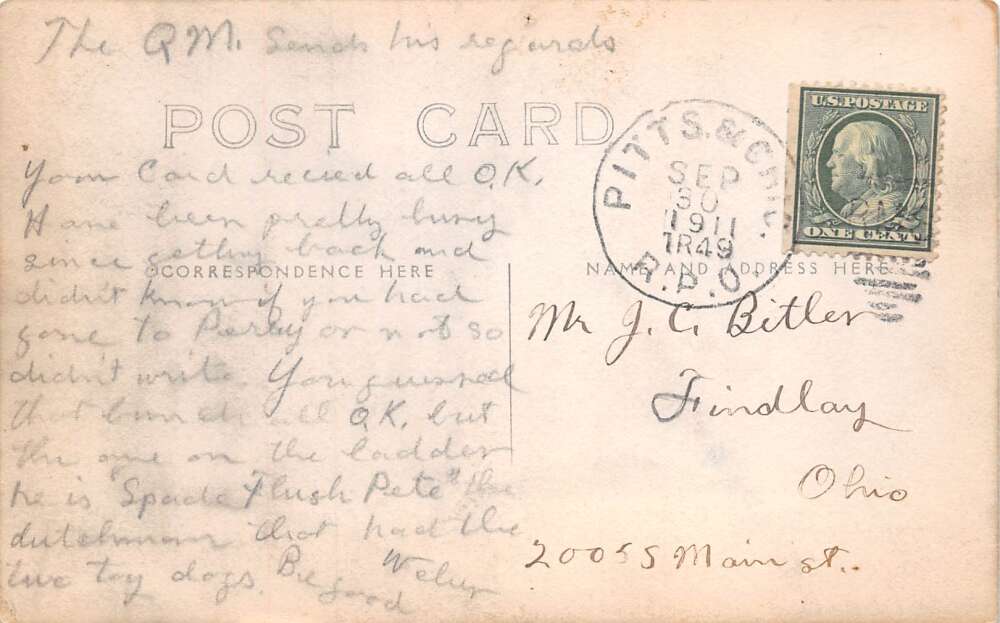 The Q.M. Sends his regards
POST CARD
Your Card recied all O.K.
Have been pretty busy
since getting back and
didn't know if you had
gone to Perley or not so
didn't write. You guessed
that bunch all O.K. but
the one on the ladder
he is "Spade Flush Pete" the
dutchman that had the
two toy dogs. Be good
CORRESPONDENCE HERE
NAME AND ADDRESS HERE
PITTS. & CHI.
SEP
30
1911
TR49
R.P.O.
U.S. POSTAGE
ONE CENT
Mr J. C. Bitler
Findlay
Ohio
2005 S Main st.